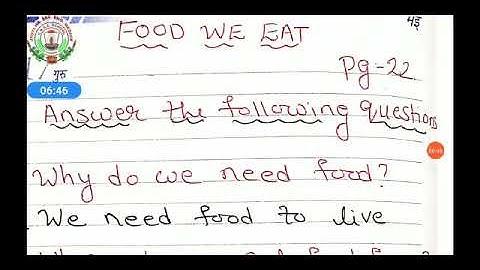 FOOD WE EAT
मई
गुरु
Pg-22
06:46
Answer the following questions
Why do we need food?
We need food to live